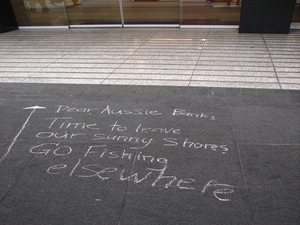 Dear Aussie Banks
Time to leave
our sunny shores
GO Fishing
elsewhere